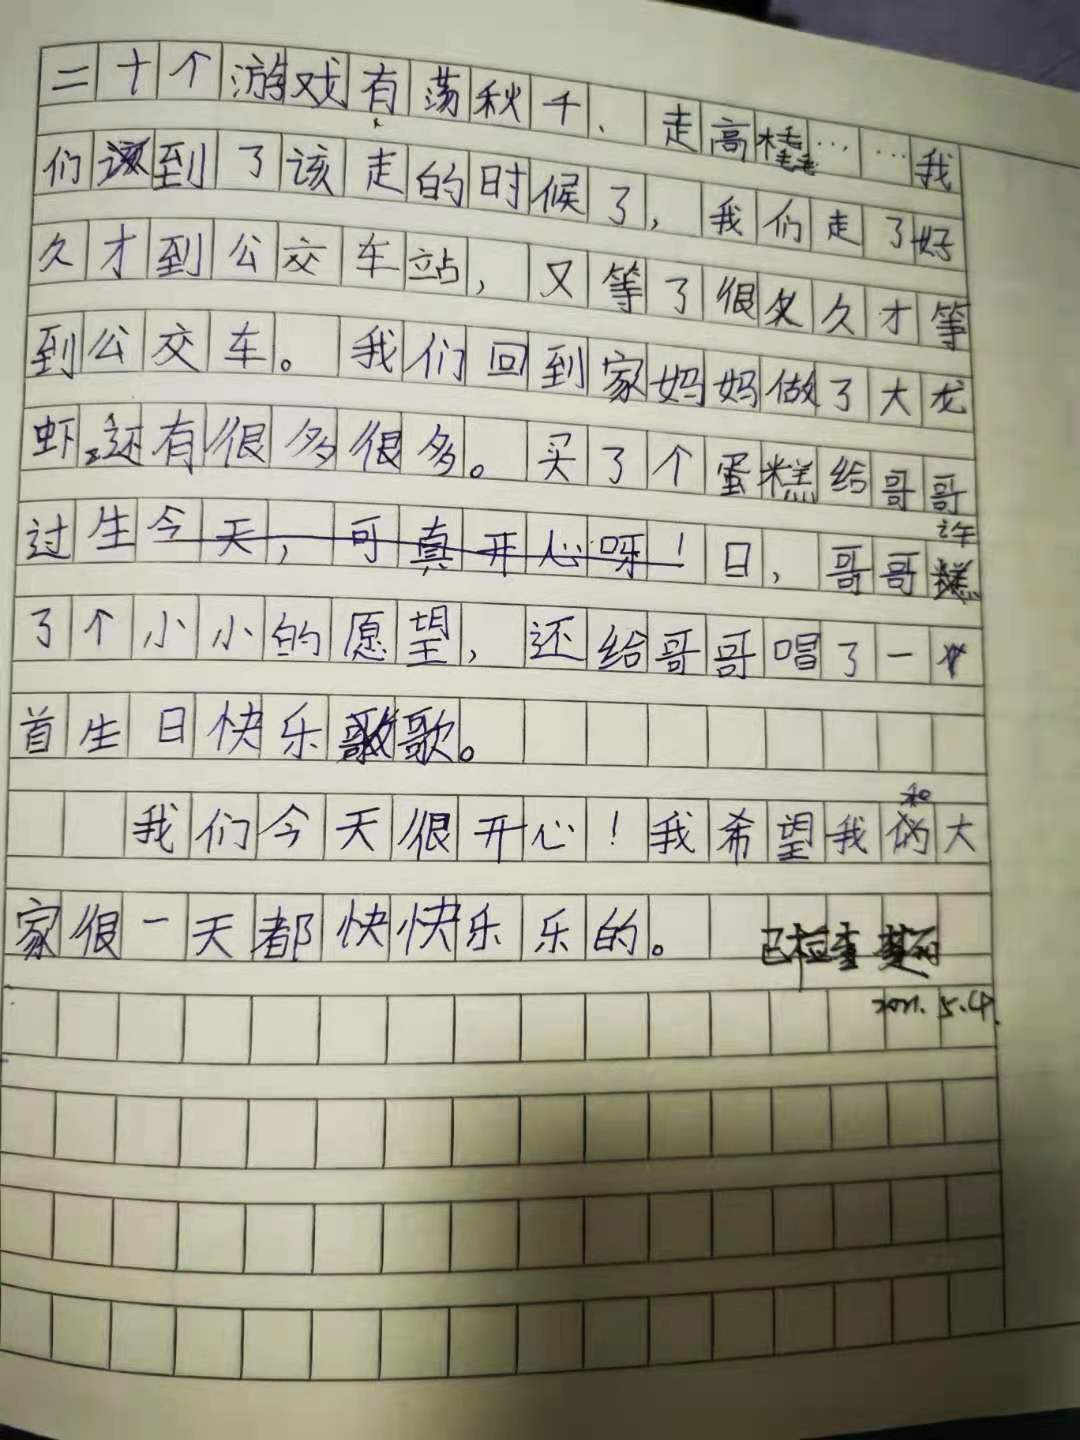 二十个游戏有荡秋千、走高橇……我
们到了该走的时候了，我们走了好
久才到公交车站，又等了很久才等
到公交车。我们回到家妈妈做了大龙
虾，还有很多很多。买了个蛋糕给哥哥
过生今天，可真开心呀！日，哥哥许
了个小小的愿望，还给哥哥唱了一
首生日快乐歌。
我们今天很开心！我希望我和大
家很一天都快快乐乐的。
已检查
2021.5.4.